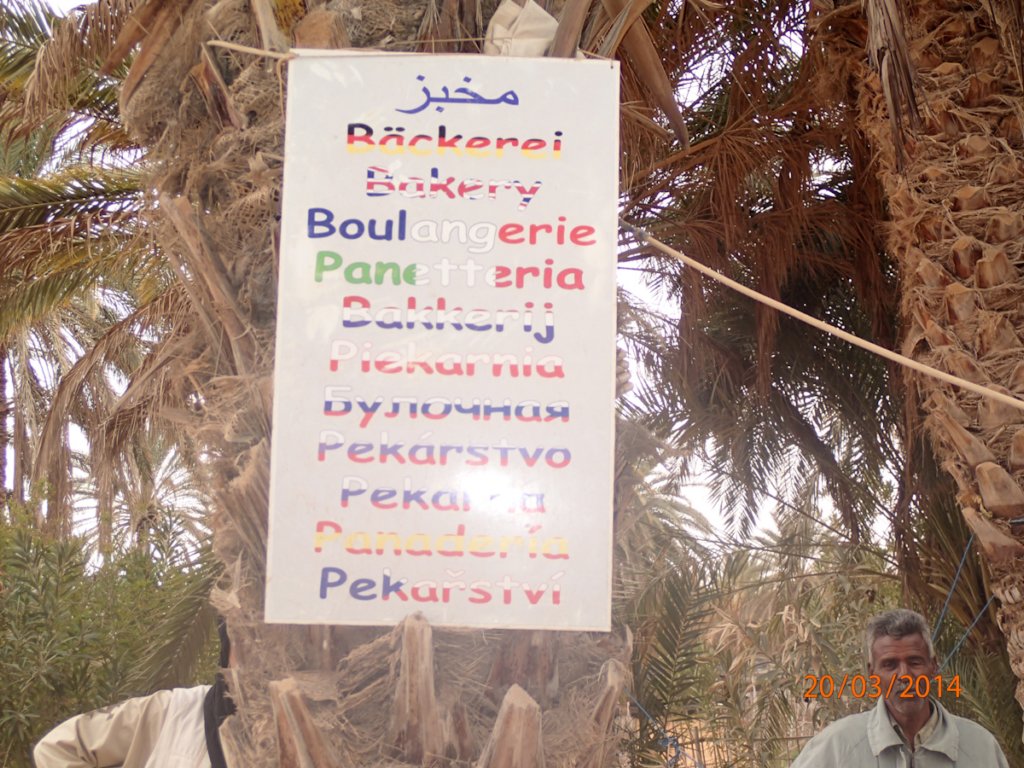 مخبز
Bäckerei
Bakery
Boulangerie
Panetteria
Bakkerij
Piekarnia
Булочная
Pekárstvo
Pekarna
Panadería
Pekařství
20/03/2014